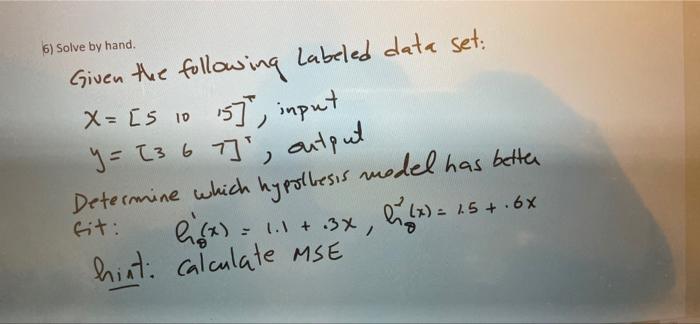 6) Solve by hand.
Given the following labeled data set:
X = [5 10 15]ᵀ, input
y = [3 6 7]ᵀ, output
Determine which hypothesis model has better
fit: h¹θ(x) = 1.1 + .3x, h²θ(x) = 1.5 + .6x
hint: Calculate MSE